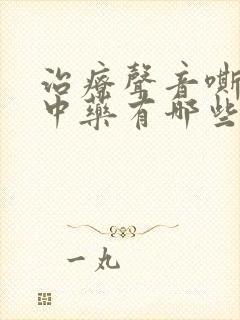 治療聲音嘶
中藥有哪些
一丸